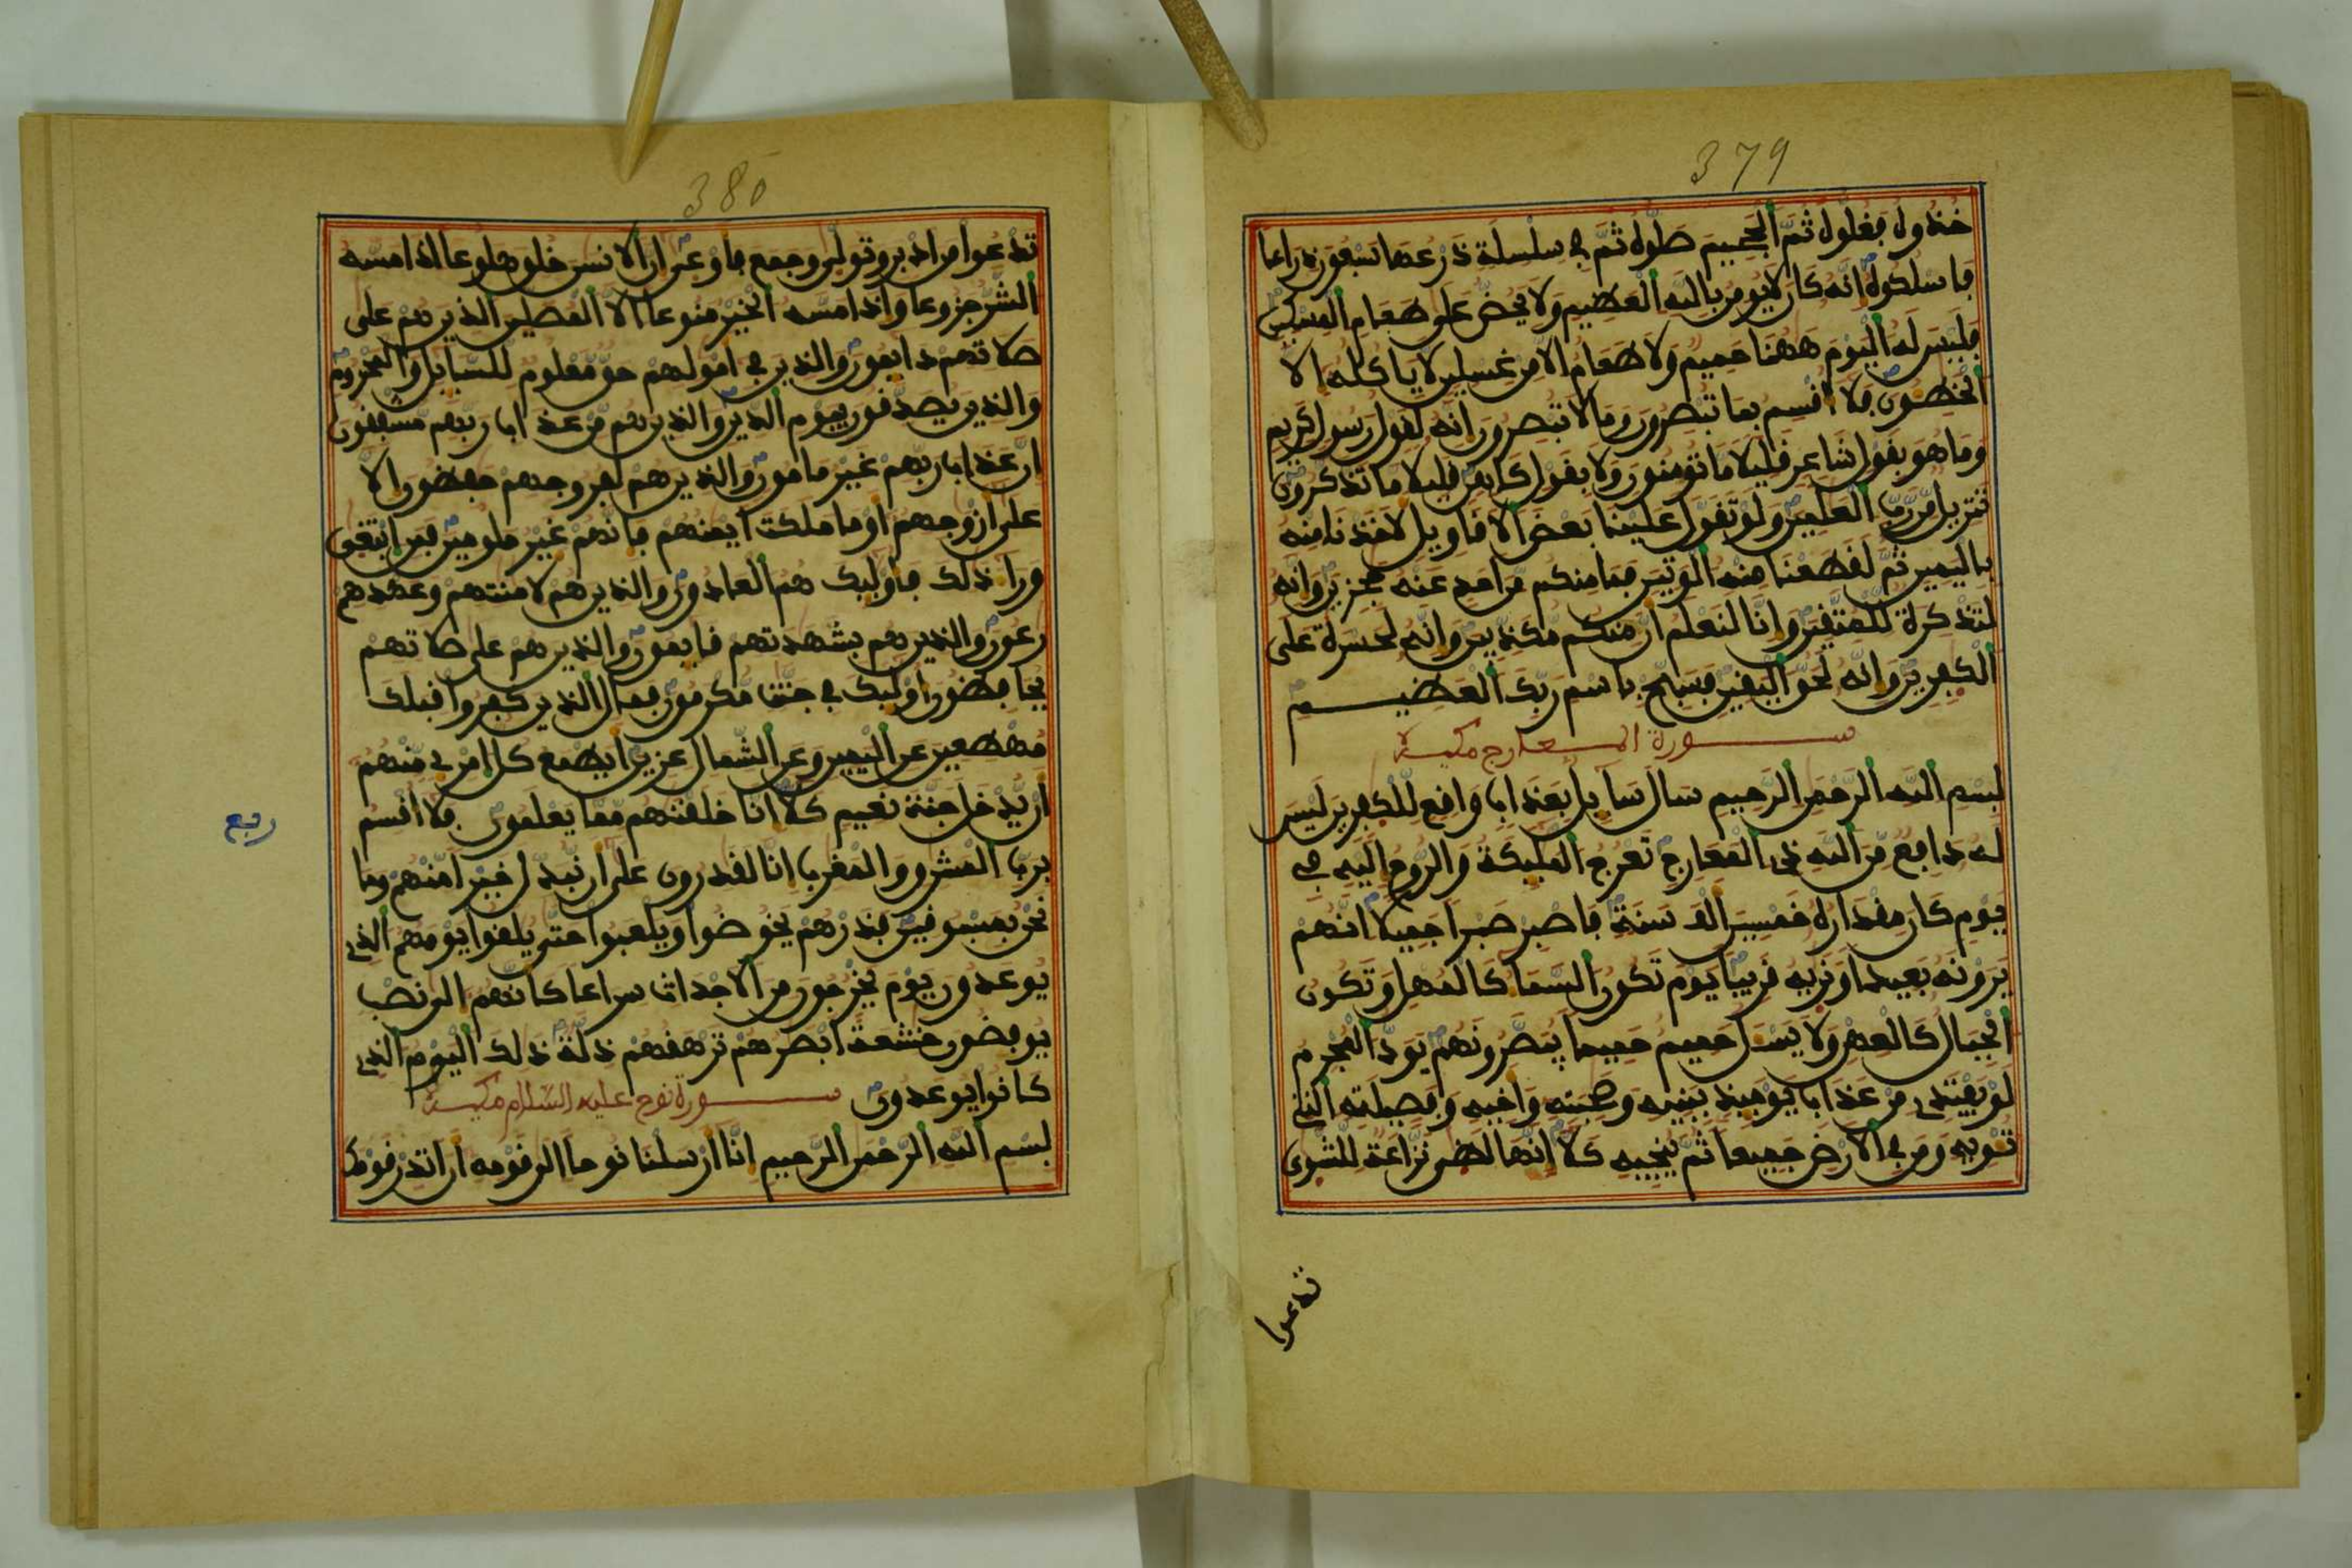 379
خذوه فغلوه ثم الجحيم صلوه ثم في سلسلة ذرعها سبعون ذراعا
فاسلكوه انه كان لا يومن بالله العظيم ولا يحض على طعام المسكين
فليس له اليوم ههنا حميم ولا طعام الا من غسلين لا ياكله الا
الخطـون فلا اقسم بما تبصرون وما لا تبصرون انه لقول رسول كريم
وما هو بقول شاعر قليلا ما تومنون ولا بقول كاهن قليلا ما تذكرون
تنزيل من رب العلمين ولو تقول علينا بعض الاقاويل لاخذنا منه
باليمين ثم لقطعنا منه الوتين فما منكم من احد عنه حجزين وانه
لتذكرة للمتقين وانا لنعلم ان منكم مكذبين وانه لحسرة على
الكفرين وانه لحق اليقين فسبح باسم ربك العظيم
سورة المعارج مكية
بسم الله الرحمن الرحيم سال سايل بعذاب واقع للكفرين ليس
له دافع من الله ذي المعارج تعرج المليكة والروح اليه في
يوم كان مقداره خمسين الف سنة فاصبر صبرا جميلا انهم
يرونه بعيدا ونريه قريبا يوم تكون السما كالمهل وتكون
الجبال كالعهن ولا يسـل حميم حميما يبصرونهم يود المجرم
لو يفتدي من عذاب يوميذ ببنيه وصحبته واخيه وفصيلته التي
تـويه ومن في الارض جميعا ثم ينجيه كلا انها لظى نزاعة للشوى
تدعوا
380
تدعوا من ادبر وتولى وجمع فاوعى ان الانسن خلق هلوعا اذا مسه
الشر جزوعا واذا مسه الخير منوعا الا المصلين الذين هم على
صلاتهم دايمون والذين في امولهم حق معلوم للسايل والمحروم
والذين يصدقون بيوم الدين والذين هم من عذاب ربهم مشفقون
ان عذاب ربهم غير مامون والذين هم لفروجهم حفظون الا
على ازوجهم او ما ملكت ايمنهم فانهم غير ملومين فمن ابتغى
ورا ذلك فاوليك هم العادون والذين هم لامنتهم وعهدهم
رعون والذين هم بشهدتهم قايمون والذين هم على صلاتهم
يحافظون اوليك في جنت مكرمون فمال الذين كفروا قبلك
مهطعين عن اليمين وعن الشمال عزين ايطمع كل امرى منهم
ان يدخل جنة نعيم كلا انا خلقنهم مما يعلمون فلا اقسم
برب المشرق والمغرب انا لقدرون على ان نبدل خيرا منهم وما
نحن بمسبوقين فذرهم يخوضوا ويلعبوا حتى يلقوا يومهم الذي
يوعدون يوم يخرجون من الاجداث سراعا كانهم الى نصب
يوفضون خشعة ابصرهم ترهقهم ذلة ذلك اليوم الذي
كانوا يوعدون سورة نوح عليه السلام مكية
بسم الله الرحمن الرحيم انا ارسلنا نوحا الى قومه ان انذر قومك
ربع